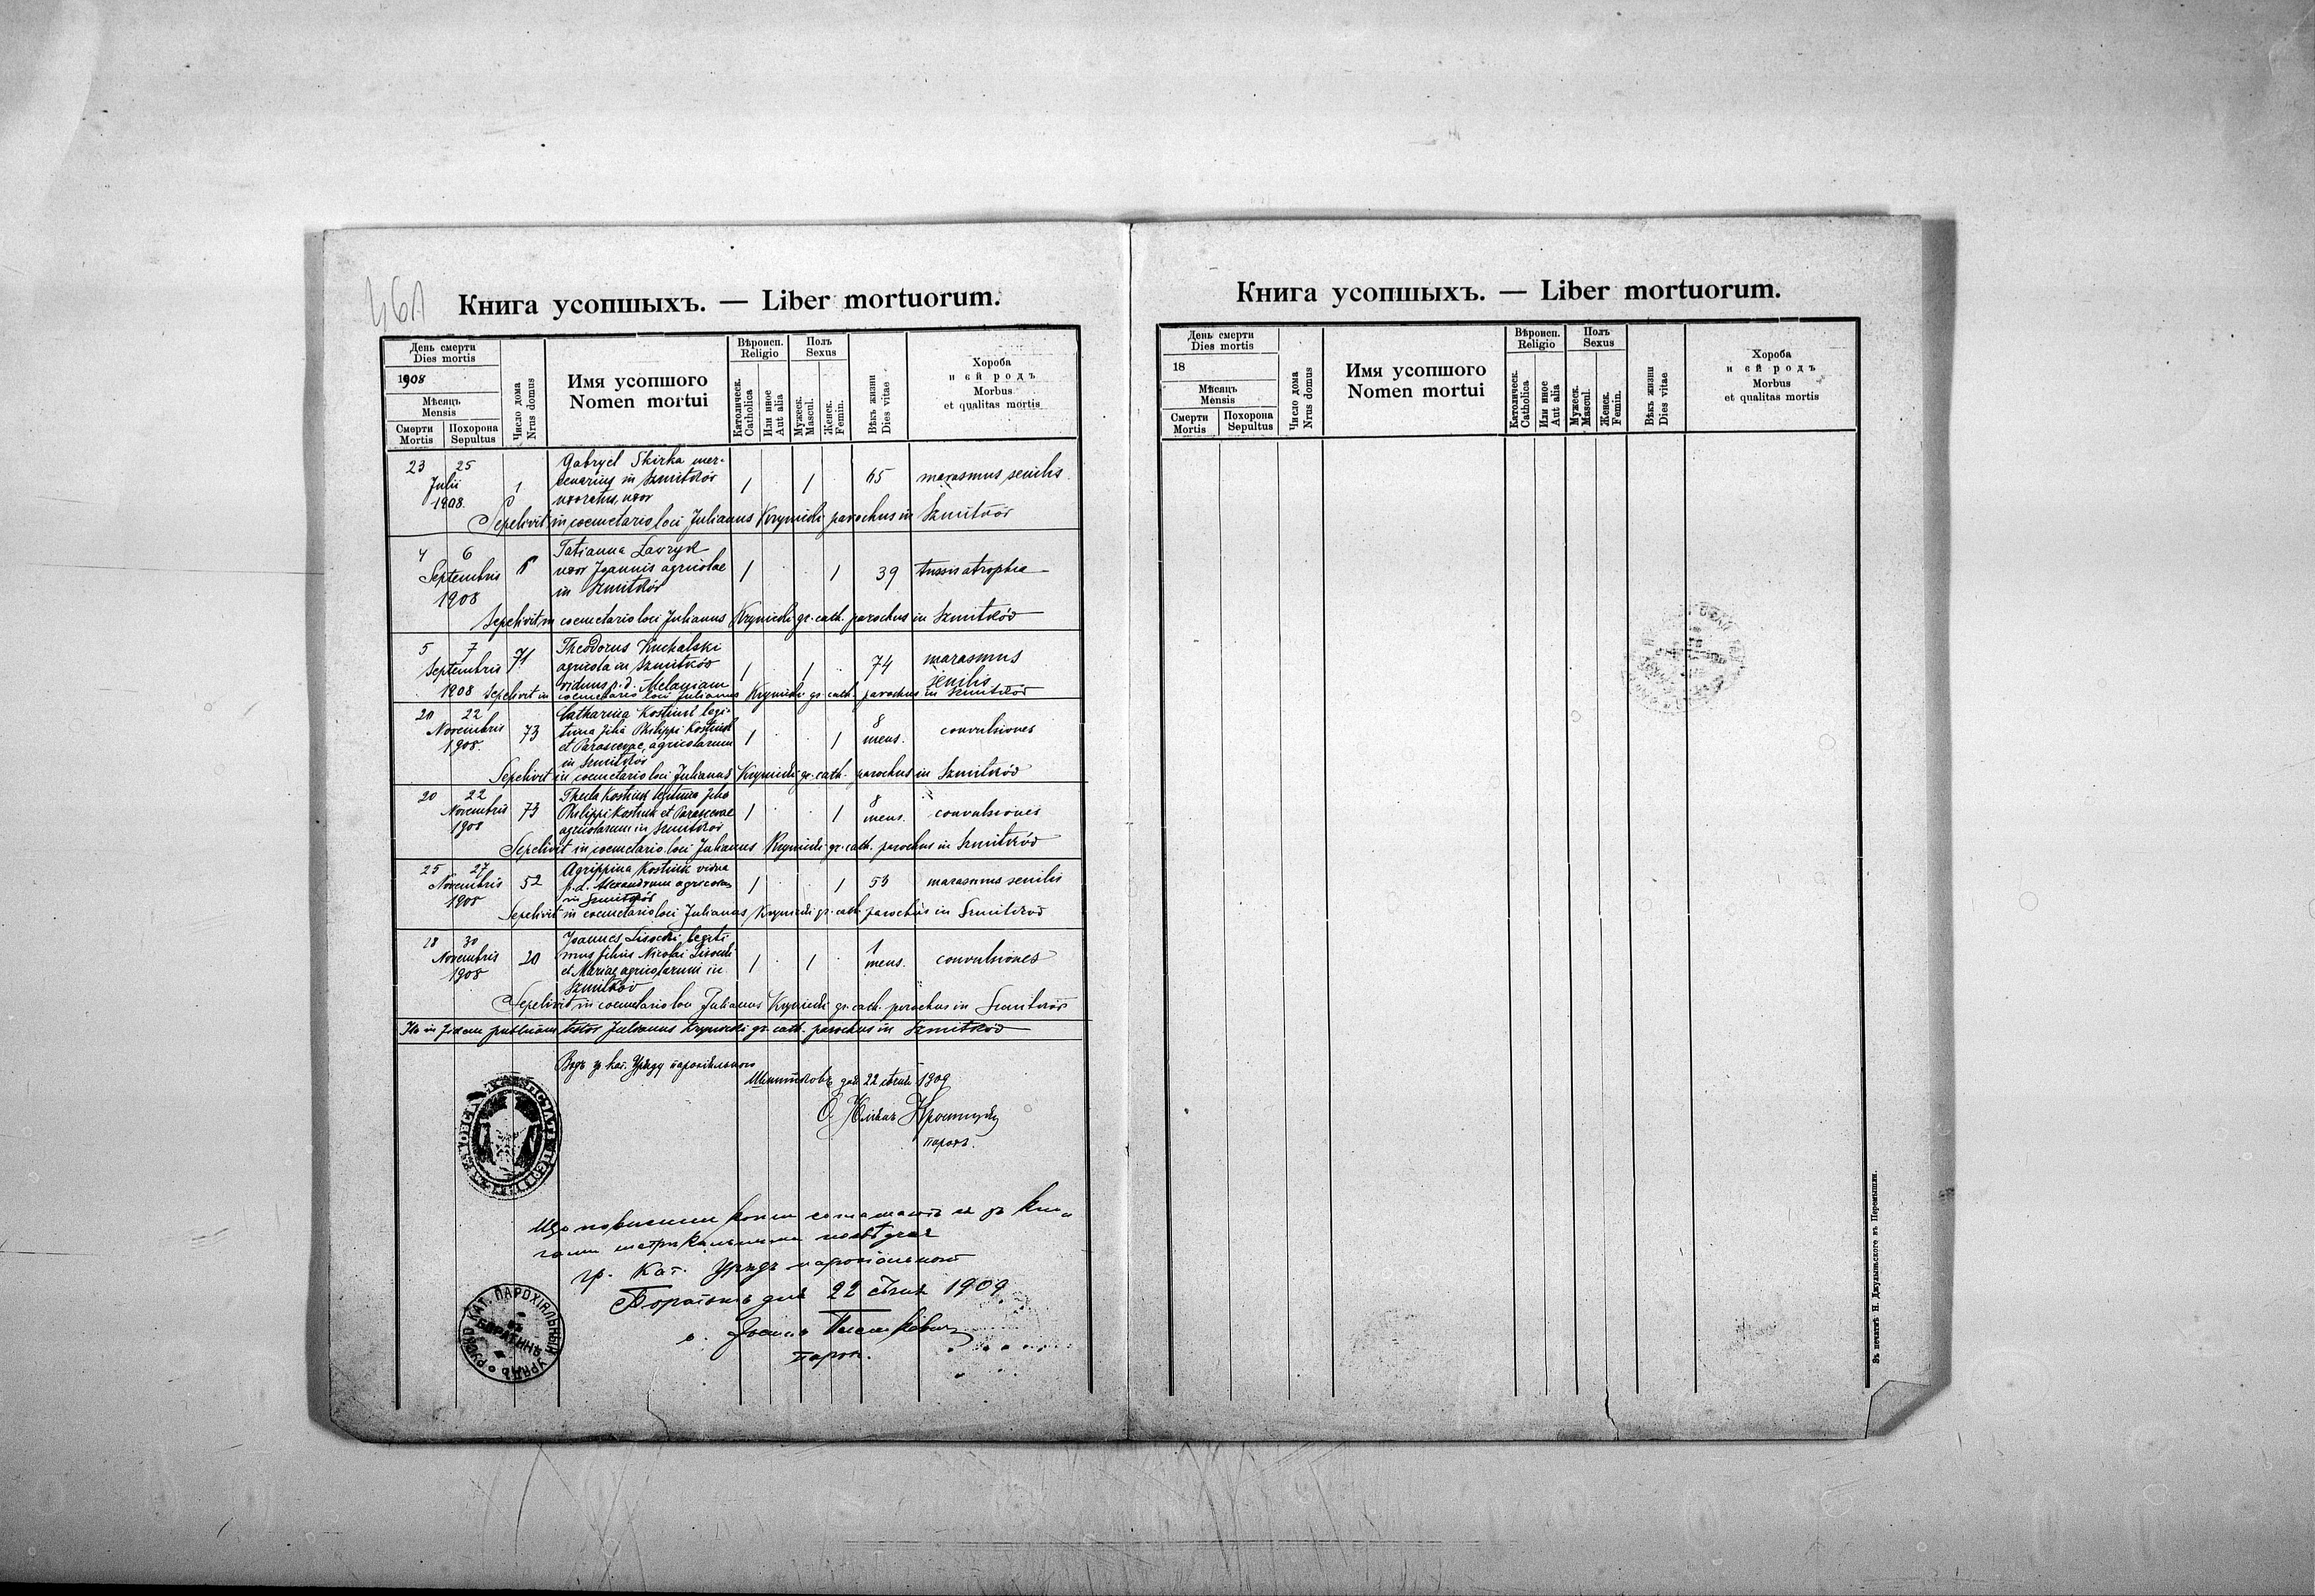 461
Книга усопшыхъ. — Liber mortuorum.
День смерти
Dies mortis
1908
Мѣсяцъ
Mensis
Смерти
Mortis
Похорона
Sepultus
Число дома
Nrus domus
Имя усопшого
Nomen mortui
Вѣроисп.
Religio
Католическ.
Catholica
Или иное
Aut alia
Полъ
Sexus
Мужеск.
Mascul.
Женск.
Femin.
Вѣкъ жизни
Dies vitae
Хороба
и єй родъ
Morbus
et qualitas mortis
23 25 Gabryel Skirka mer-
Julii 1 cenarius in Szmitków 1 1 65 marasmus senilis
1908. uxoratus, uxor
Sepelivit in coemetario loci Julianus Krynicki parochus in Szmitków
4 6 Tatianna Ławryk
Septembris uxor Joannis agricolae 1 1 39 tussis atrophia
1908 in Szmitków
Sepelivit in coemetario loci Julianus Krynicki gr. cath. parochus in Szmitków
5 7 71 Theodorus Kuchalski
Septembris agricola in Szmitków 1 1 74 marasmus
viduus p. d. Melaniam senilis
1908 Sepelivit in coemetario loci Julianus Krynicki gr. cath. parochus in Szmitków
20 22 Catharina Kostiuk legi-
Novembris 73 tima filia Philippi Kostiuk 1 1 8 convulsiones
1908. et Parascevae, agricolarum mens.
in Szmitków
Sepelivit in coemetario loci Julianus Krynicki gr. cath. parochus in Szmitków
20 22 Thecla Kostiuk legitima filia
Novembris 73 Philippi Kostiuk et Parascevae 1 1 8 convulsiones
1908 agricolarum in Szmitków mens.
Sepelivit in coemetario loci Julianus Krynicki gr. cath. parochus in Szmitków
25 27 Agrippina Kostiuk vidua
Novembris 52 p. d. Alexandrum agricolam 1 1 53 marasmus senilis
1908 in Szmitków
Sepelivit in coemetario loci Julianus Krynicki gr. cath. parochus in Szmitków
28 30 Joannes Lisocki legiti-
Novembris 20 mus filius Nicolai Lisocki 1 1 1 convulsiones
1908 et Mariae agricolarum in mens.
Szmitków
Sepelivit in coemetario loci Julianus Krynicki gr. cath. parochus in Szmitków
in fidem publicam testor Julianus Krynicki gr. cath. parochus in Szmitków
гр. кат. Уряду парохіяльного
Шмитковъ дня 22 січня 1909
О. Юліан
парох.
гр. Кат. Урядъ парохіяльный
Боратынъ дня 22 січня 1909
парох.
РУСКО КАТ. ПАРОХІЯЛЬНЫЙ УРЯДЪ
ВЪ
БОРАТЫНѢ
Книга усопшыхъ. — Liber mortuorum.
День смерти
Dies mortis
18
Мѣсяцъ
Mensis
Смерти
Mortis
Похорона
Sepultus
Число дома
Nrus domus
Имя усопшого
Nomen mortui
Вѣроисп.
Religio
Католическ.
Catholica
Или иное
Aut alia
Полъ
Sexus
Мужеск.
Mascul.
Женск.
Femin.
Вѣкъ жизни
Dies vitae
Хороба
и єй родъ
Morbus
et qualitas mortis
Въ печатнѣ Н. Джулыньского въ Перемышли.